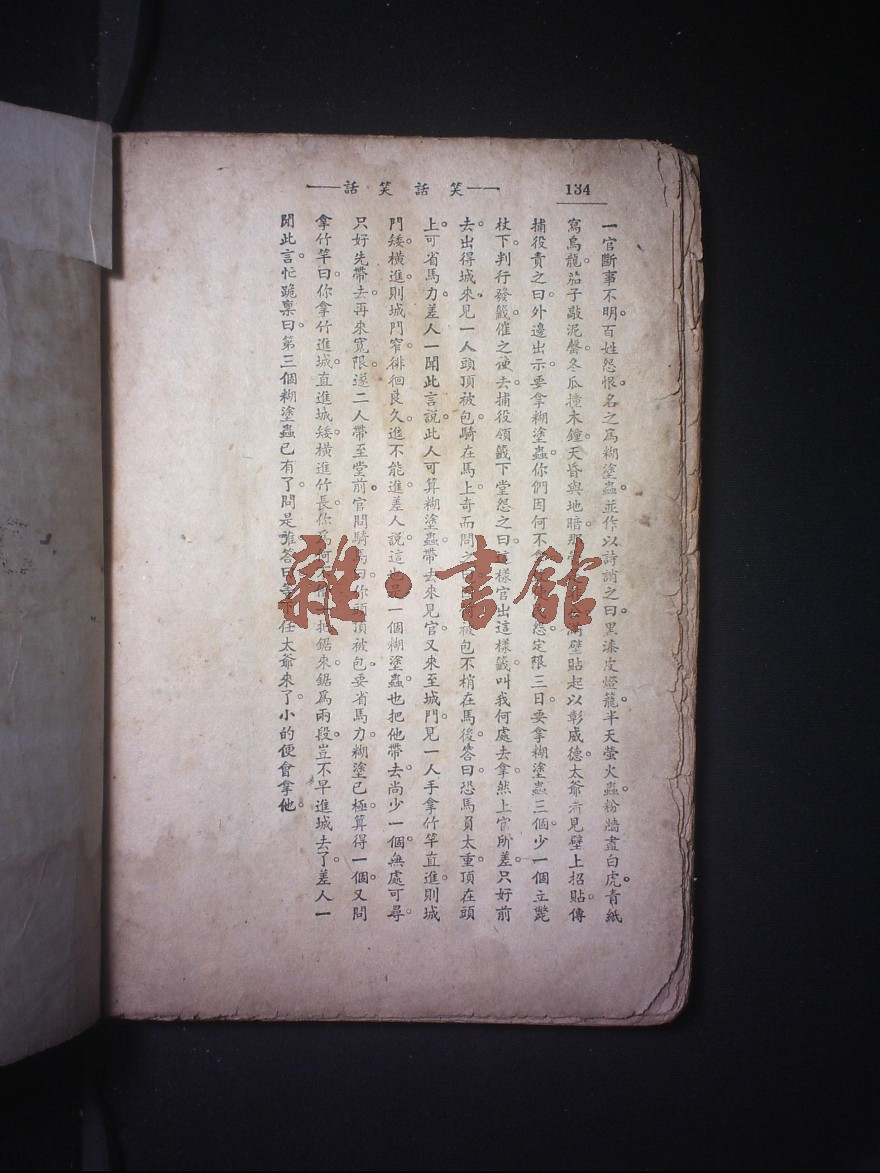 134
笑話笑話
一官斷事不明。百姓怨恨。名之爲糊塗蟲。並作以詩誚之曰。黑漆皮燈籠。半天螢火蟲。粉牆畫白虎。青紙
寫烏龍。茄子敲泥磬。冬瓜撞木鐘。天昏與地暗。那 壁貼起。以彰威德。太爺看見壁上招貼。傳
捕役責之曰。外邊出示。要拿糊塗蟲。你們因何不 怨定限三日。要拿糊塗蟲三個。少一個立斃
杖下。判行發籤。催之使去。捕役領籤下堂。怨之曰。這樣官出這樣籤。叫我何處去拿。然上官所差。只好前
去。出得城來。見一人頭頂被包。騎在馬上。奇而問之 被包不梢在馬後。答曰。恐馬負太重。頂在頭
上。可省馬力。差人一聞此言。說此人可算糊塗蟲。帶去來見官。又來至城門。見一人手拿竹竿。直進則城
門矮。橫進則城門窄。徘徊良久。進不能進。差人說。這也是一個糊塗蟲。也把他帶去。尚少一個。無處可尋。
只好先帶去。再來寬限。遂二人帶至堂前。官問騎馬曰。你頭頂被包。要省馬力。糊塗已極。算得一個。又問
拿竹竿曰。你拿竹進城。直進城矮。橫進竹長。你爲何 把鋸來。鋸爲兩段。豈不早進城去了。差人一
聞此言。忙跪稟曰。第三個糊塗蟲已有了。問是誰。答曰。 下任太爺來了。小的便會拿他。
雜·書館